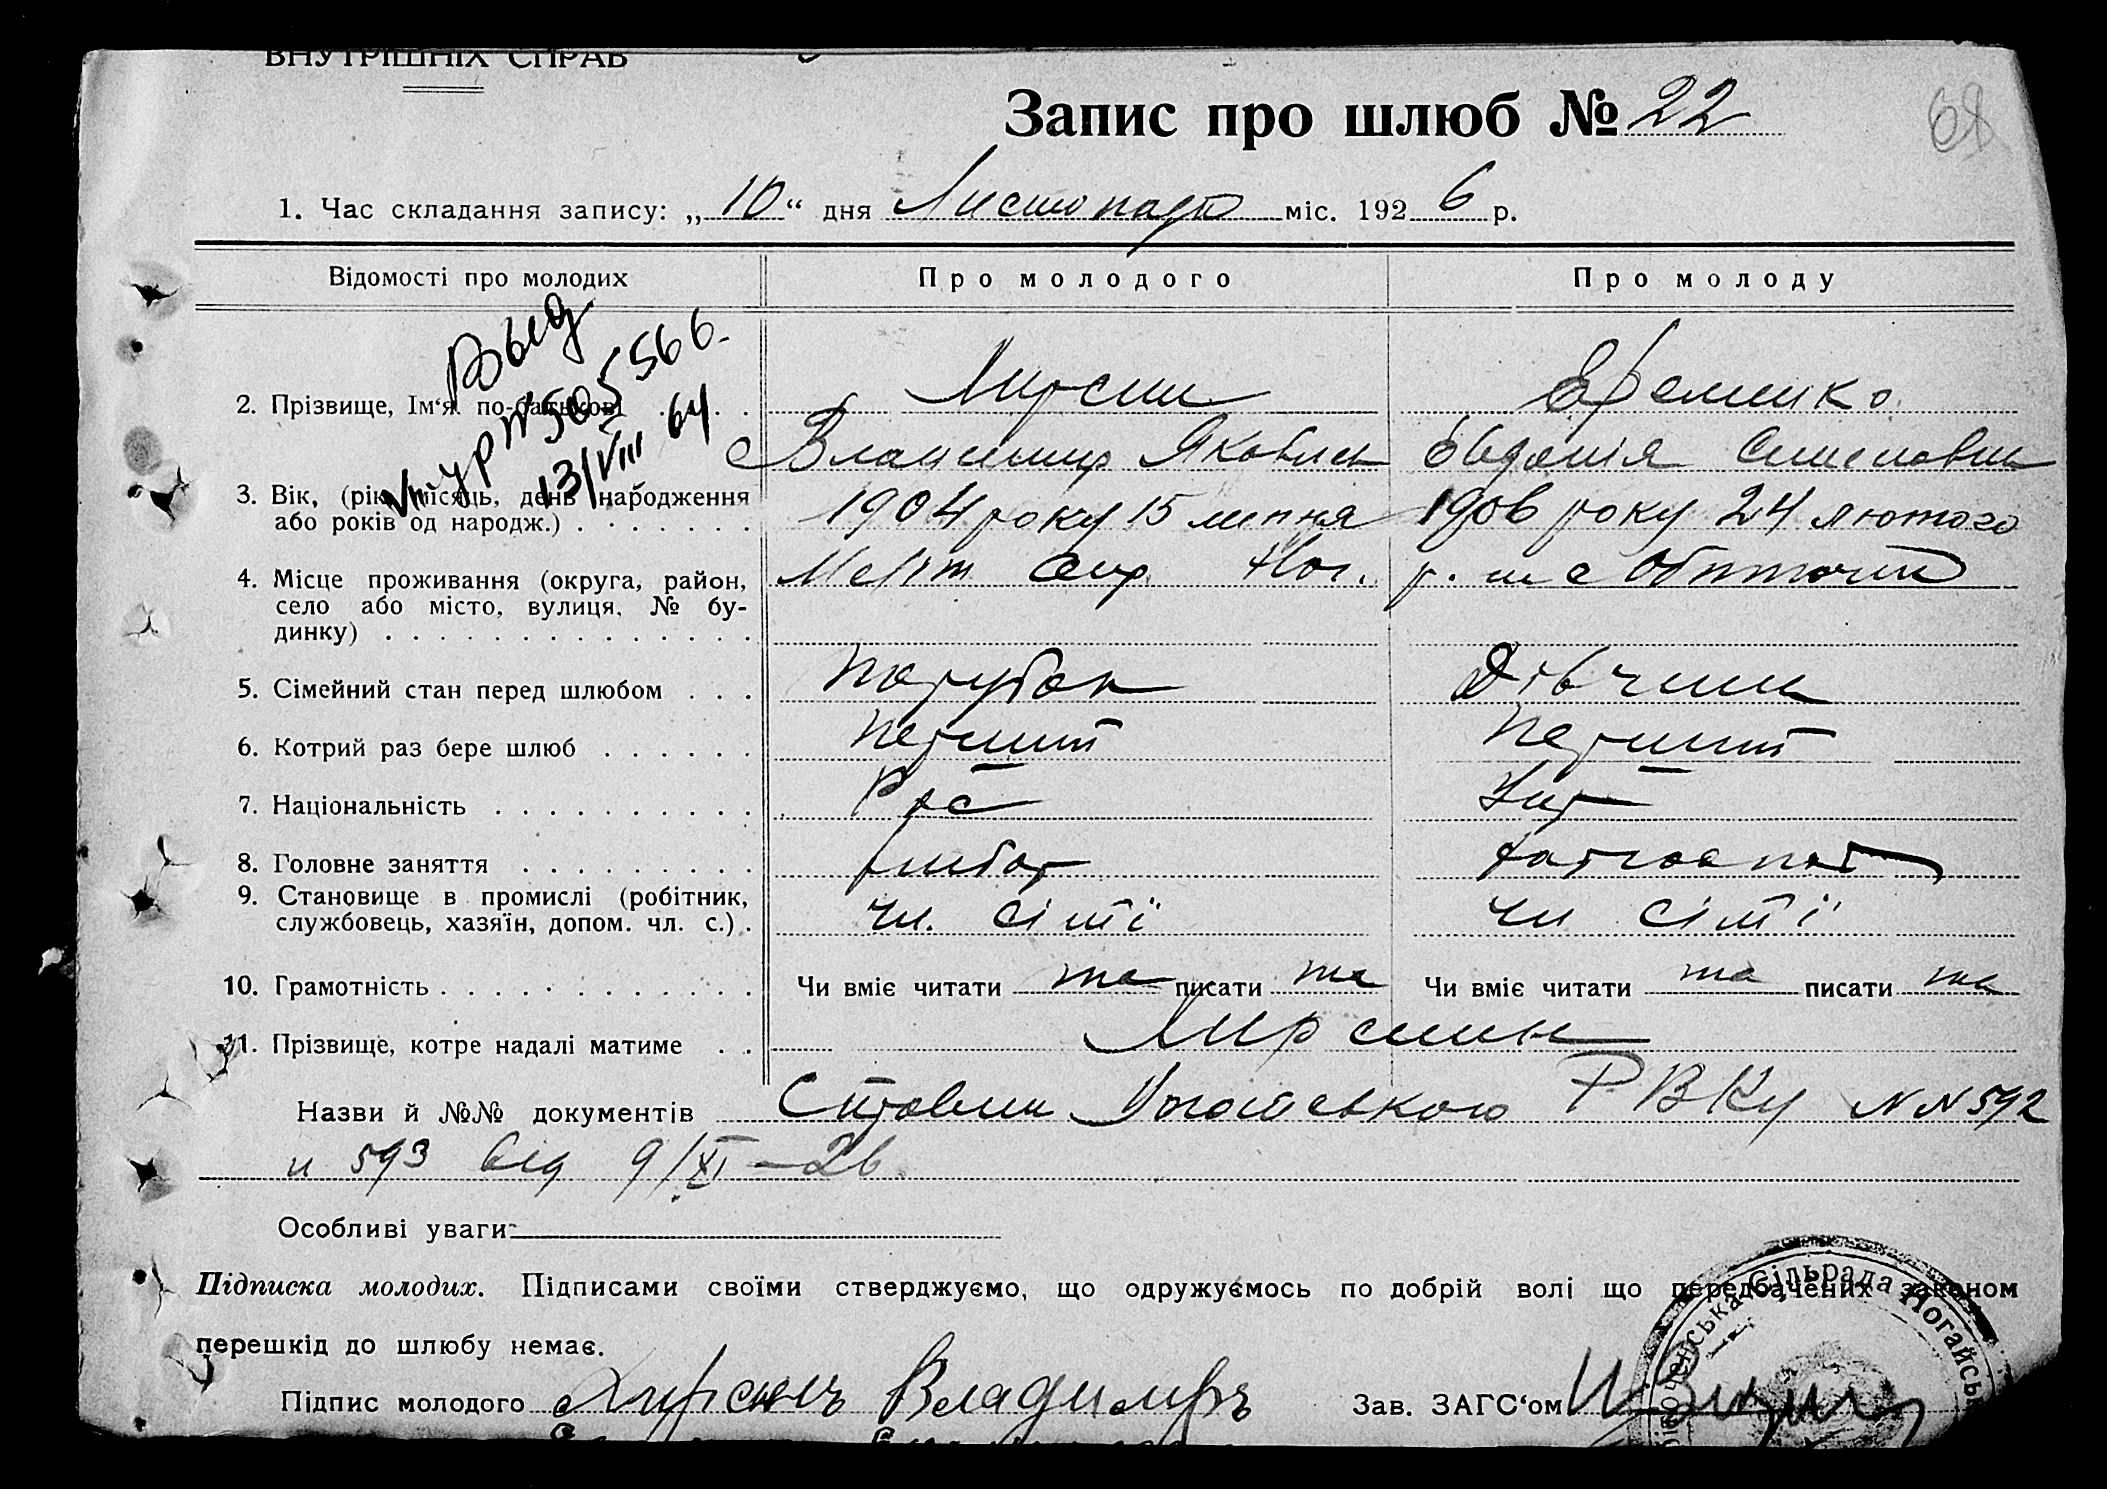 ВНУТРІШНІХ СПРАВ
Запис про шлюб № 22
68
1. Час складання запису: „10“ дня Листопада міс. 1926 р.
Відомості про молодих Про молодого Про молоду
Выд
№ 505566.
13/VIII 64
2. Прізвище, Ім‘я по-батькові . . . Еременко
Владимир Яковлев Євдокія Семеновна
3. Вік, (рік, місяць, день народження
або років од народж.) . . . . . . . 1904 року 15 липня 1906 року 24 лютого
4. Місце проживання (округа, район, Меліт Окр Ног. р. с Обиточни
село або місто, вулиця, № бу-
динку) . . . . . . . . . . . . . .
5. Сімейний стан перед шлюбом . . . Парубок Дівчина
6. Котрий раз бере шлюб . . . . . . Перший Перший
7. Національність . . . . . . . . . . Рос Укр
8. Головне заняття . . . . . . . . . рибал
9. Становище в промислі (робітник,
службовець, хазяїн, допом. чл. с.) . чл. сімї чл сімї
10. Грамотність . . . . . . . . . . . . Чи вміє читати та писати та Чи вміє читати та писати та
11. Прізвище, котре надалі матиме . . Лирсин
Назви й №№ документів Ногайського РВКу NN 592
и 593 від 9/XI–26
Особливі уваги
Підписка молодих. Підписами своїми стверджуємо, що одружуємось по добрій волі що передбачених законом
перешкід до шлюбу немає.
Підпис молодого Владимиръ Зав. ЗАГС‘ом
Сільрада Ногайсь